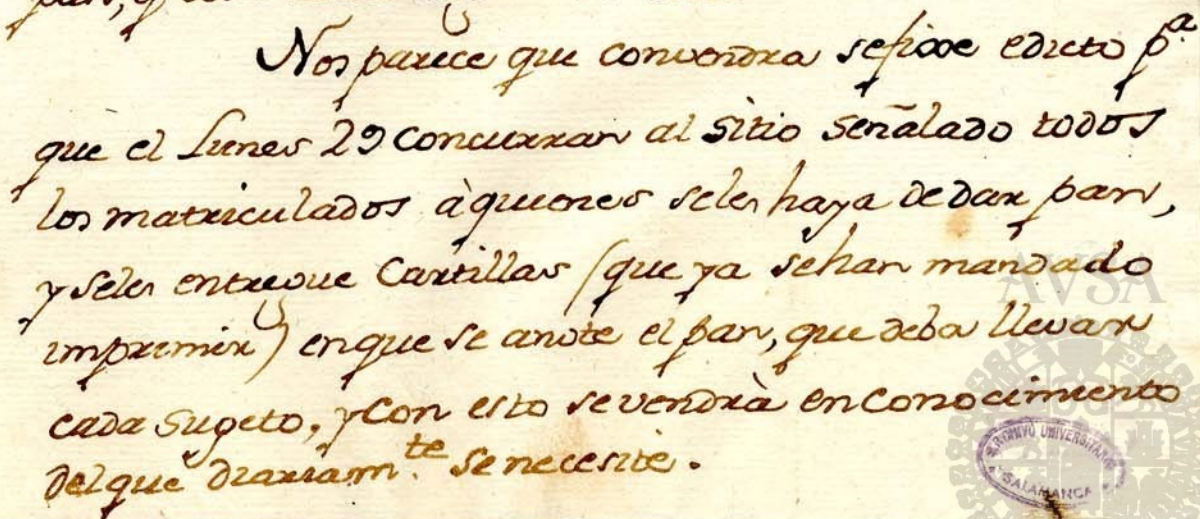 Nos parece que convendra sefixe edicto p.ª
que el Lunes 29 concurran al sitio señalado todos
los matriculados à quienes seles haya dedar pan,
y seles entregue Cartillas (que ya sehan mandado
imprimir) enque se anote el pan, que deba llevar
cada sugeto, y con esto sevendrà en conocimiento
del que diariam.te se necesite.
AVSA
ARCHIVO UNIVERSITARIO
SALAMANCA